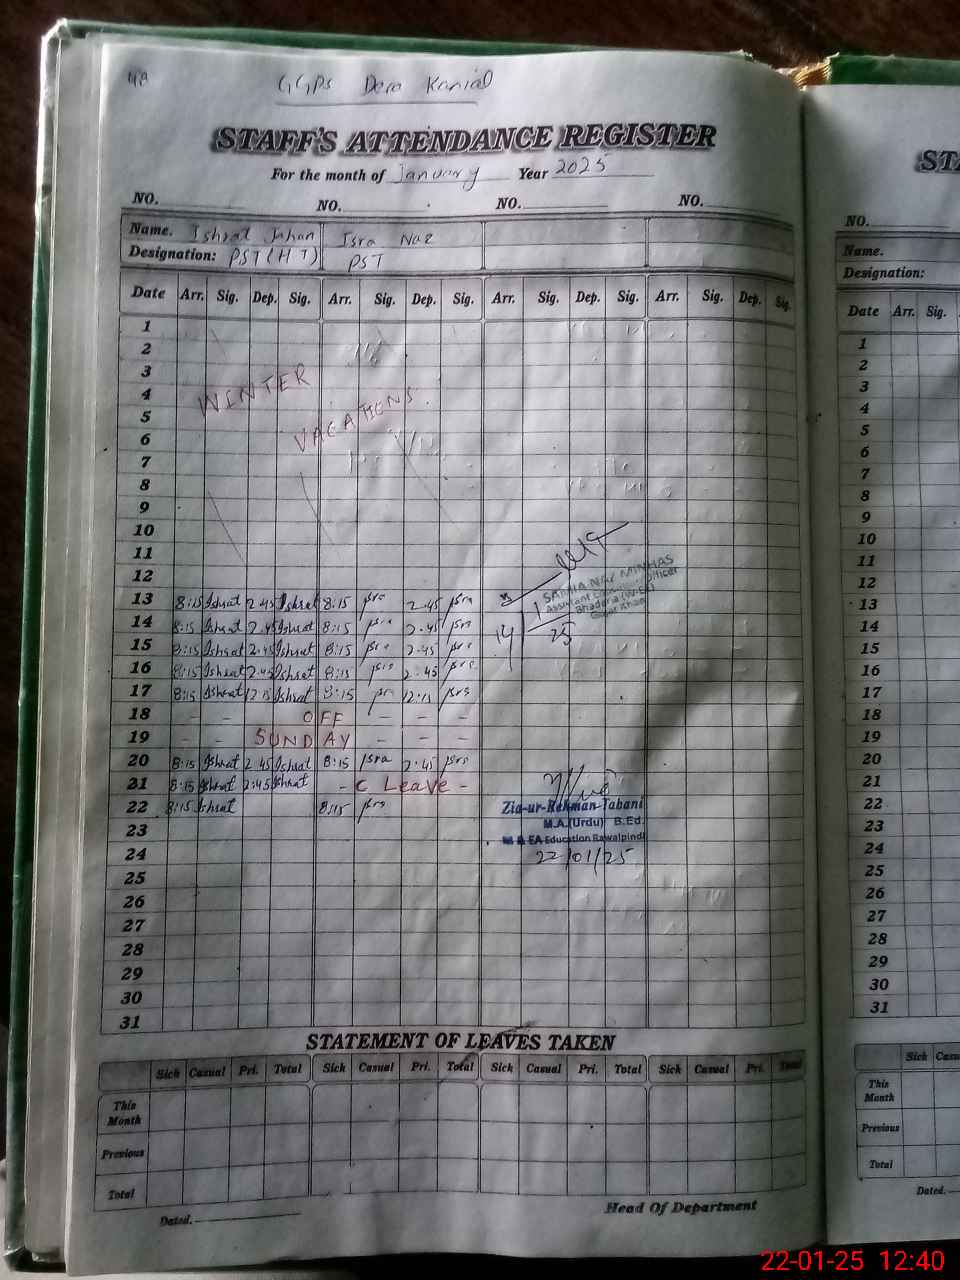 48
GGPS Dera Kanial
STAFF'S ATTENDANCE REGISTER
For the month of January Year 2025
NO. NO. NO. NO.
Name. Ishrat Jahan Isra Naz
Designation: PST (HT) PST
Date Arr. Sig. Dep. Sig. Arr. Sig. Dep. Sig. Arr. Sig. Dep. Sig. Arr. Sig. Dep. Sig.
1
2
3
4
WINTER
5
VACATIONS
6
7
8
9
10
11
12
13 8:15 Ishrat 2.45 Ishrat 8:15 Isra 2.45 Isra
14 8:15 Ishrat 2.45 Ishrat 8:15 Isra 2.45 Isra
15 8:15 Ishrat 2.45 Ishrat 8:15 Isra 2.45 Isra
16 8:15 Ishrat 2.45 Ishrat 8:15 Isra 2.45 Isra
17 8:15 Ishrat 12.15 Ishrat 8:15 Isra 12.15 Isra
18 - - OFF - - -
19 - - SUNDAY - - -
20 8:15 Ishrat 2.45 Ishrat 8:15 Isra 2.45 Isra
21 8:15 Ishrat 2:45 Ishrat - C Leave -
22 8:15 Ishrat 8:15 Isra
23
24
25
26
27
28
29
30
31
SAMIA NAZ MINHAS
Assistant Education Officer
14/1/25
Zia-ur-Rehman Tabani
M.A.(Urdu) B.Ed.
M & EA Education Rawalpindi
22/01/25
STATEMENT OF LEAVES TAKEN
Sick Casual Pri. Total Sick Casual Pri. Total Sick Casual Pri. Total Sick Casual Pri. Total
This Month
Previous
Total
Dated.
Head Of Department
ST
NO.
Name.
Designation:
Date Arr. Sig.
1
2
3
4
5
6
7
8
9
10
11
12
13
14
15
16
17
18
19
20
21
22
23
24
25
26
27
28
29
30
31
Sick
This Month
Previous
Total
Dated.
22-01-25 12:40